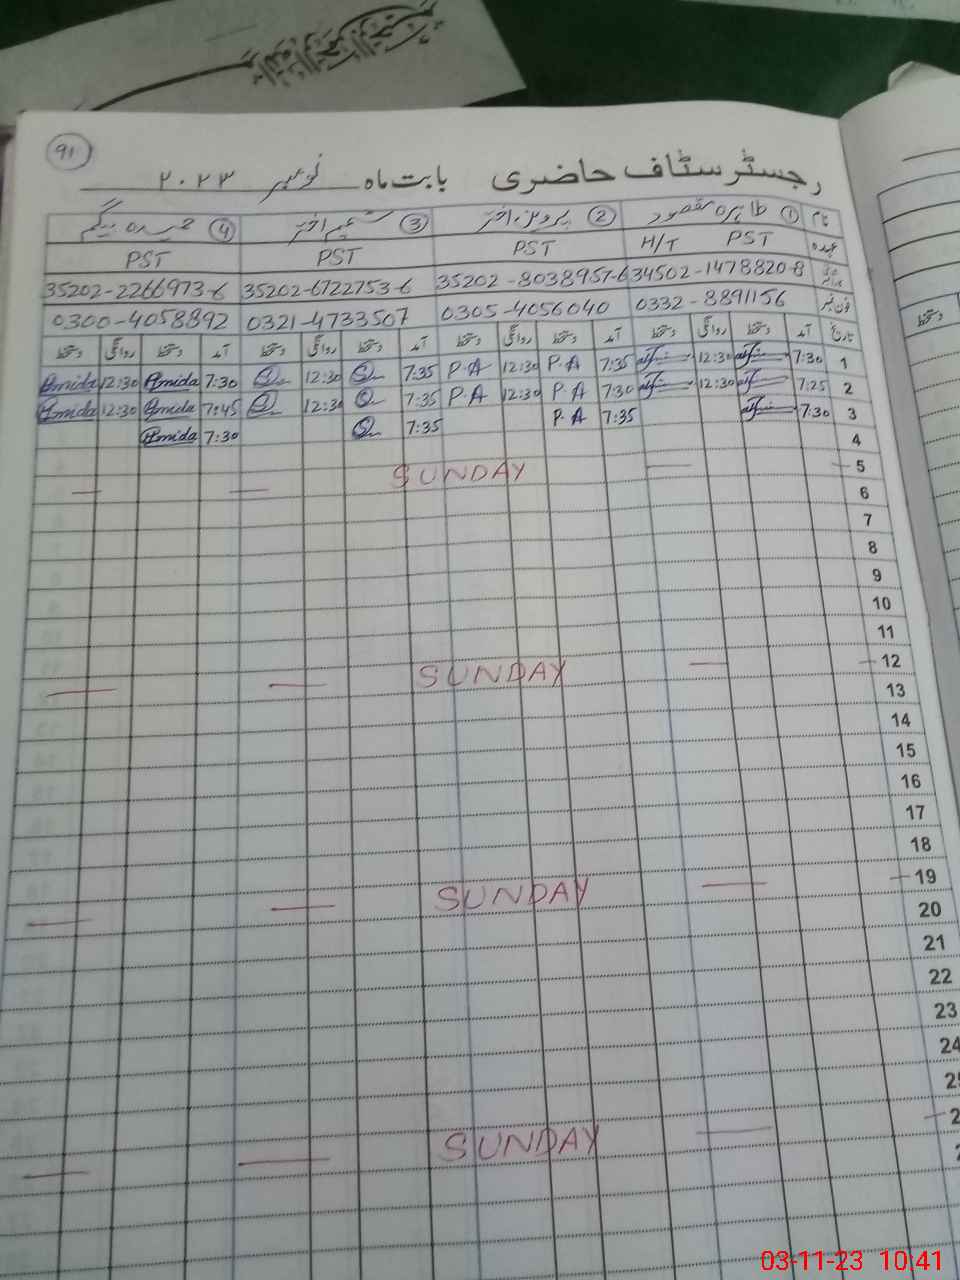 91
رجسٹر سٹاف حاضری بابت ماہ نومبر ۲۰۲۳
نام ① طاہرہ مقصود ② پروین اختر ③ شمیم اختر ④ حمیدہ بیگم
عہدہ PST H/T PST PST PST
34502-1478820-8 35202-8038957-6 35202-6722753-6 35202-2266973-6
فون نمبر 0332-8891156 0305-4056040 0321-4733507 0300-4058892
تاریخ آمد دستخط روانگی دستخط آمد دستخط روانگی دستخط آمد دستخط روانگی دستخط آمد دستخط روانگی دستخط
1 7:30 12:30 7:35 P.A 12:30 P.A 7:35 12:30 7:30 Hmida 12:30 Hmida
2 7:25 12:30 7:30 P.A 12:30 P.A 7:35 12:30 7:45 Hmida 12:30 Hmida
3 7:30 7:35 P.A 7:35 7:30 Hmida
4
5 SUNDAY
6
7
8
9
10
11
12 SUNDAY
13
14
15
16
17
18
19 SUNDAY
20
21
22
23
24
SUNDAY
03-11-23 10:41